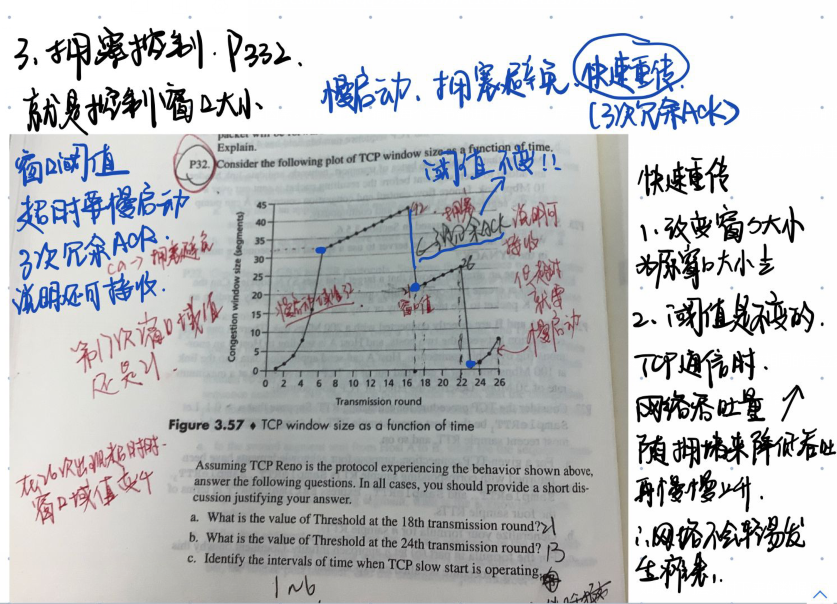 3、拥塞控制. P332.
就是控制窗口大小
慢启动、拥塞避免、快速重传
(3次冗余ACK)
窗口阈值
超时要慢启动
3次冗余ACK.
ca→拥塞避免
说明还可接收.
在26次出现超时时.
窗口域值变
Explain.
P32. Consider the following plot of TCP window size as a function of time.
阈值不变!!
Congestion window size (segments)
45
40
35
30
25
20
15
10
5
0
42
拥塞
3次冗余ACK
说明可
接收
但超时
就要
慢启动
慢启动域值32
21
窗口值
26
0 2 4 6 8 10 12 14 16 18 20 22 24 26
Transmission round
Figure 3.57 ♦ TCP window size as a function of time
Assuming TCP Reno is the protocol experiencing the behavior shown above,
answer the following questions. In all cases, you should provide a short dis-
cussion justifying your answer.
a. What is the value of Threshold at the 18th transmission round? 21
b. What is the value of Threshold at the 24th transmission round? 13
c. Identify the intervals of time when TCP slow start is operating.
1~6
快速重传
1、改变窗口大小
为原窗口大小
2、阈值是不变的.
TCP通信时.
网络吞吐量 ↗
随拥堵来降低吞吐
再慢慢上升.
∴网络不会
生瘫痪.